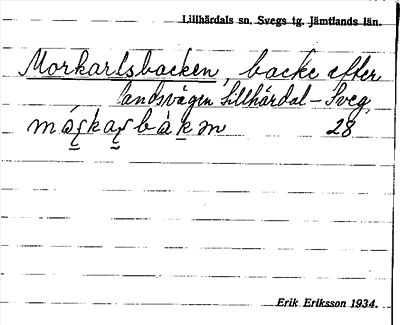 Lillhärdals sn. Svegs tg. Jämtlands län.
Morkarlsbacken, backe efter
landsvägen Lillhärdal – Sveg,
28
Erik Eriksson 1934.